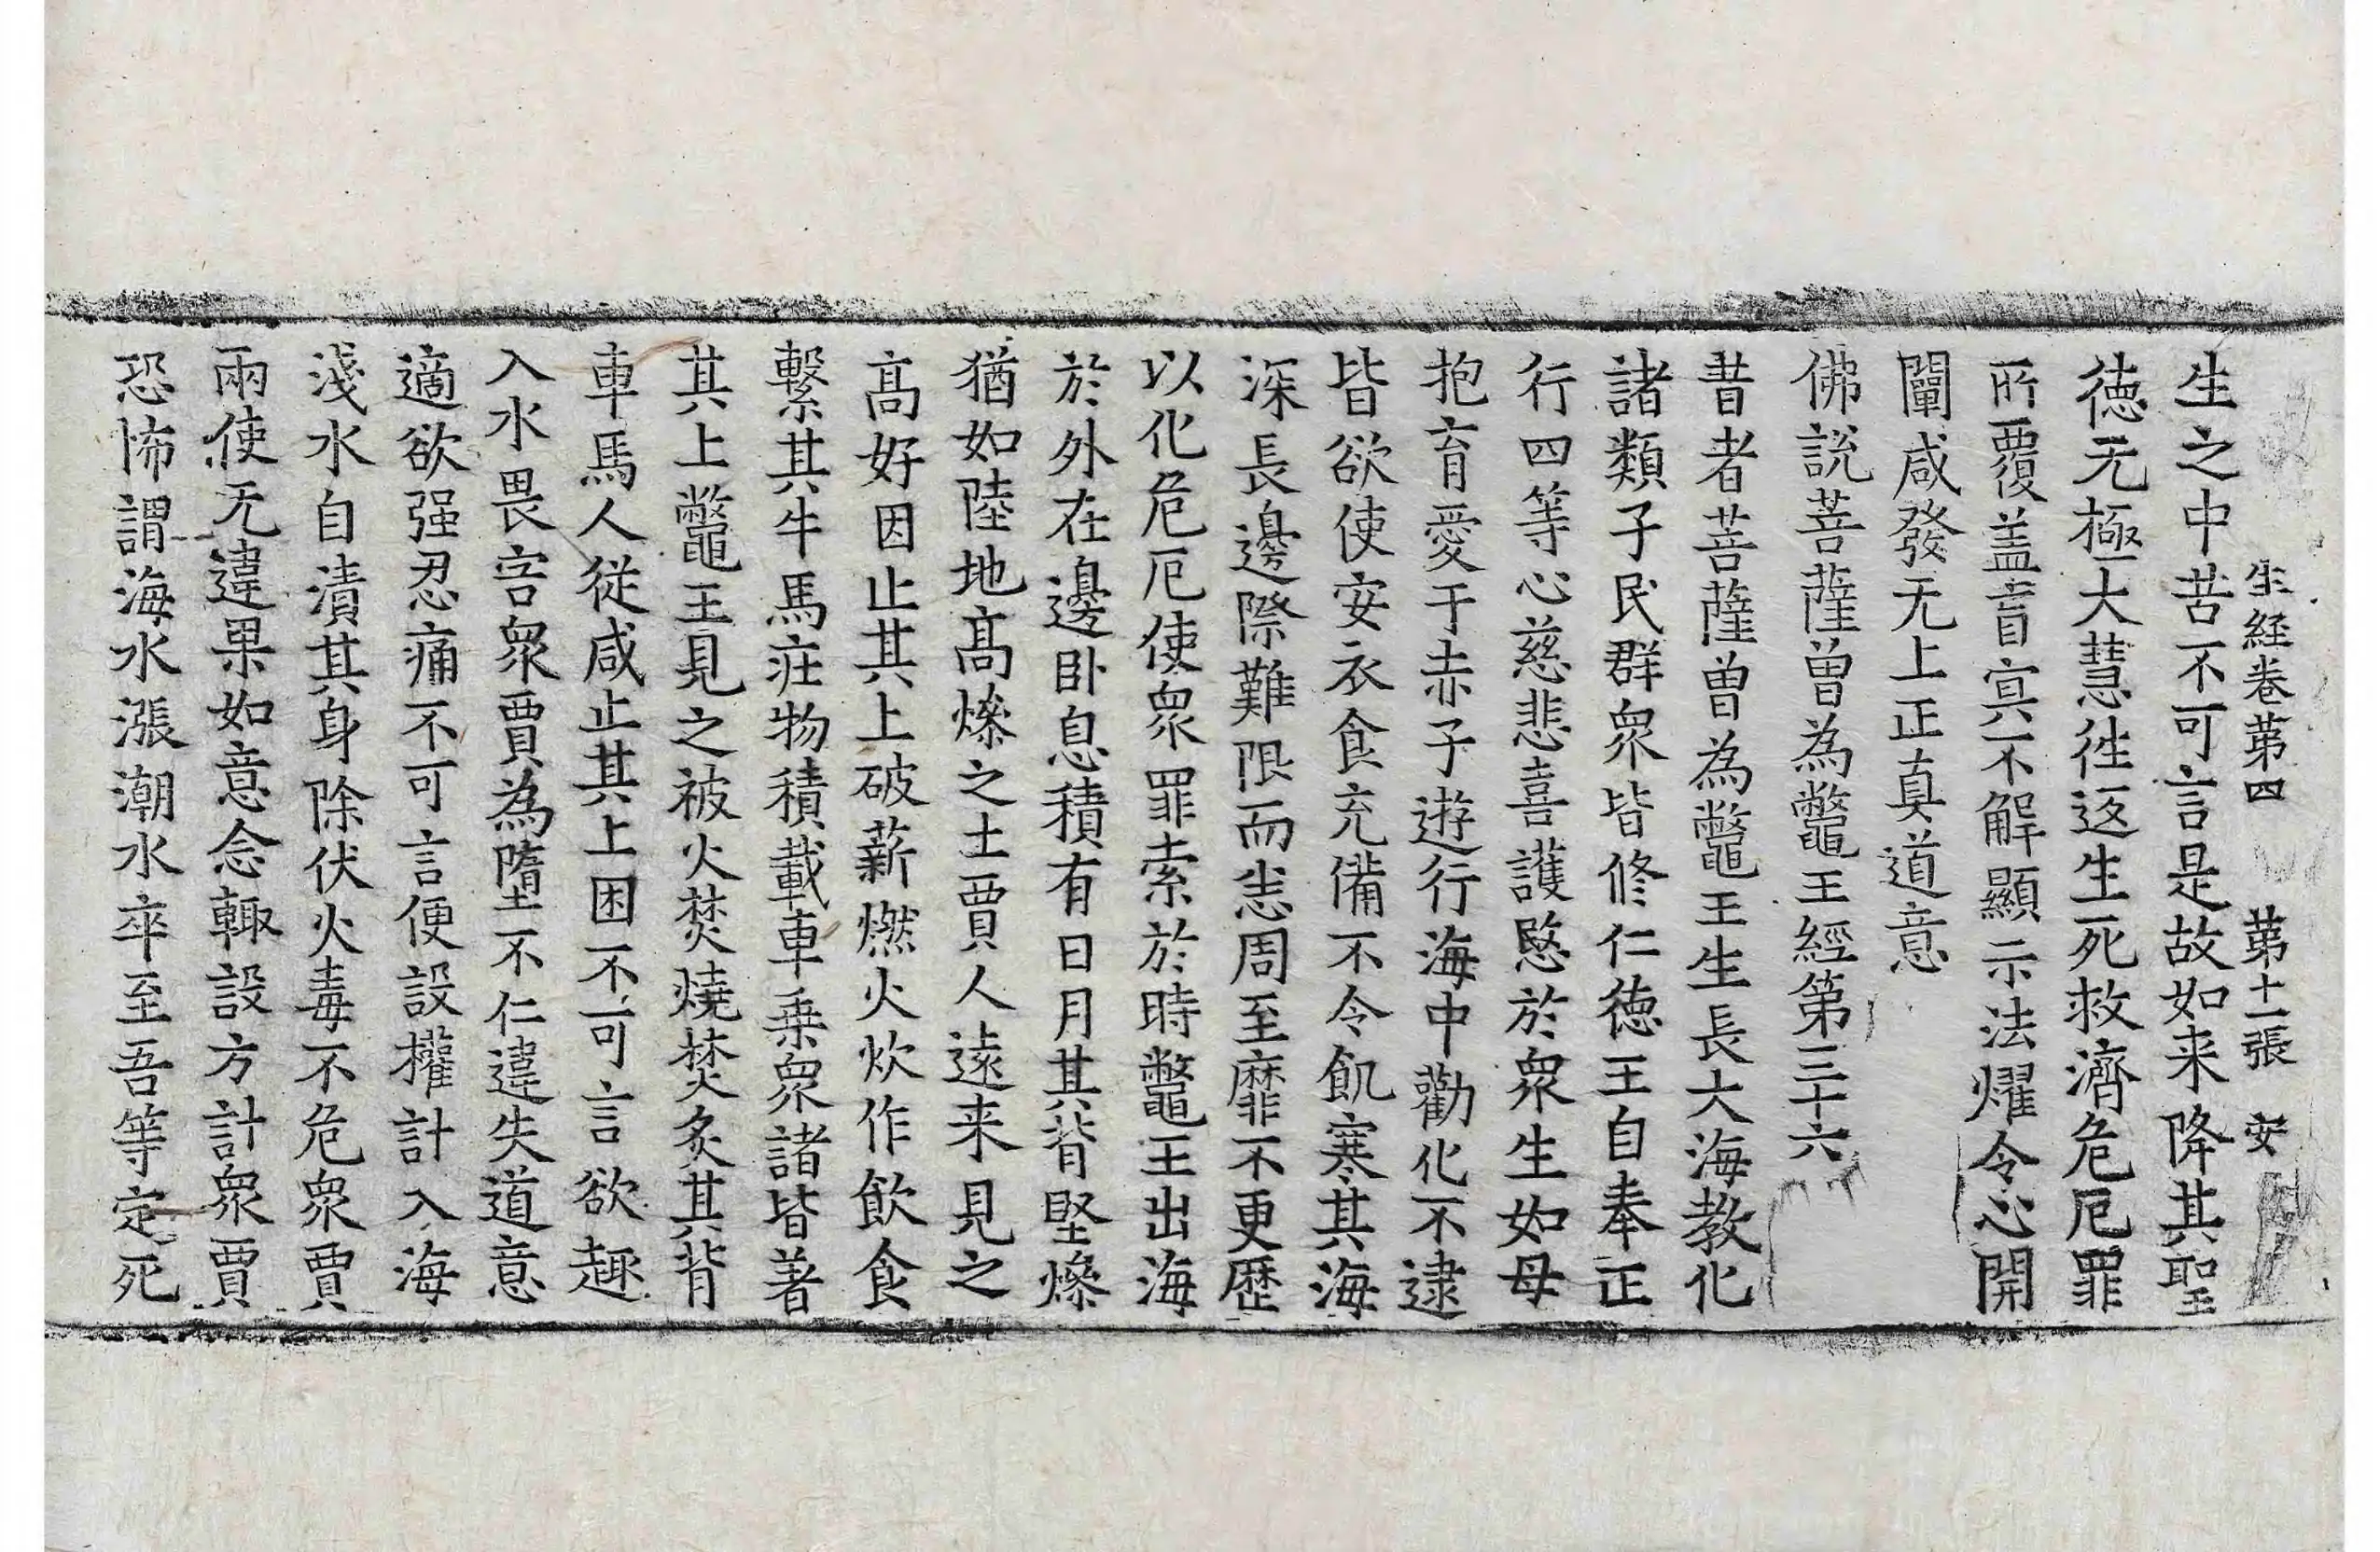 生經卷第四　第十一張　安
生之中苦不可言是故如来降其聖
德无極大慧徃返生死救濟危厄罪
所覆盖盲冥不解顯示法燿令心開
闡咸發无上正真道意
佛說菩薩曽為鼈王經第三十六
昔者菩薩曽為鼈王生長大海教化
諸類子民群衆皆修仁德王自奉正
行四等心慈悲喜護愍於衆生如母
抱育愛于赤子遊行海中勸化不逮
皆欲使安衣食充備不令飢寒其海
深長邊際難限而悉周至靡不更歷
以化危厄使衆罪索於時鼈王出海
於外在邊卧息積有日月其背堅燥
猶如陸地髙燥之土賈人遠来見之
髙好因止其上破薪燃火炊作飲食
繫其牛馬莊物積載車乗衆諸皆著
其上鼈王見之被火焚燒焚炙其背
車馬人従咸止其上困不可言欲趣
入水畏害衆賈為墮不仁違失道意
適欲强忍痛不可言便設權計入海
淺水自漬其身除伏火毒不危衆賈
兩使无違果如意念輙設方計衆賈
恐怖謂海水漲潮水卒至吾等定死